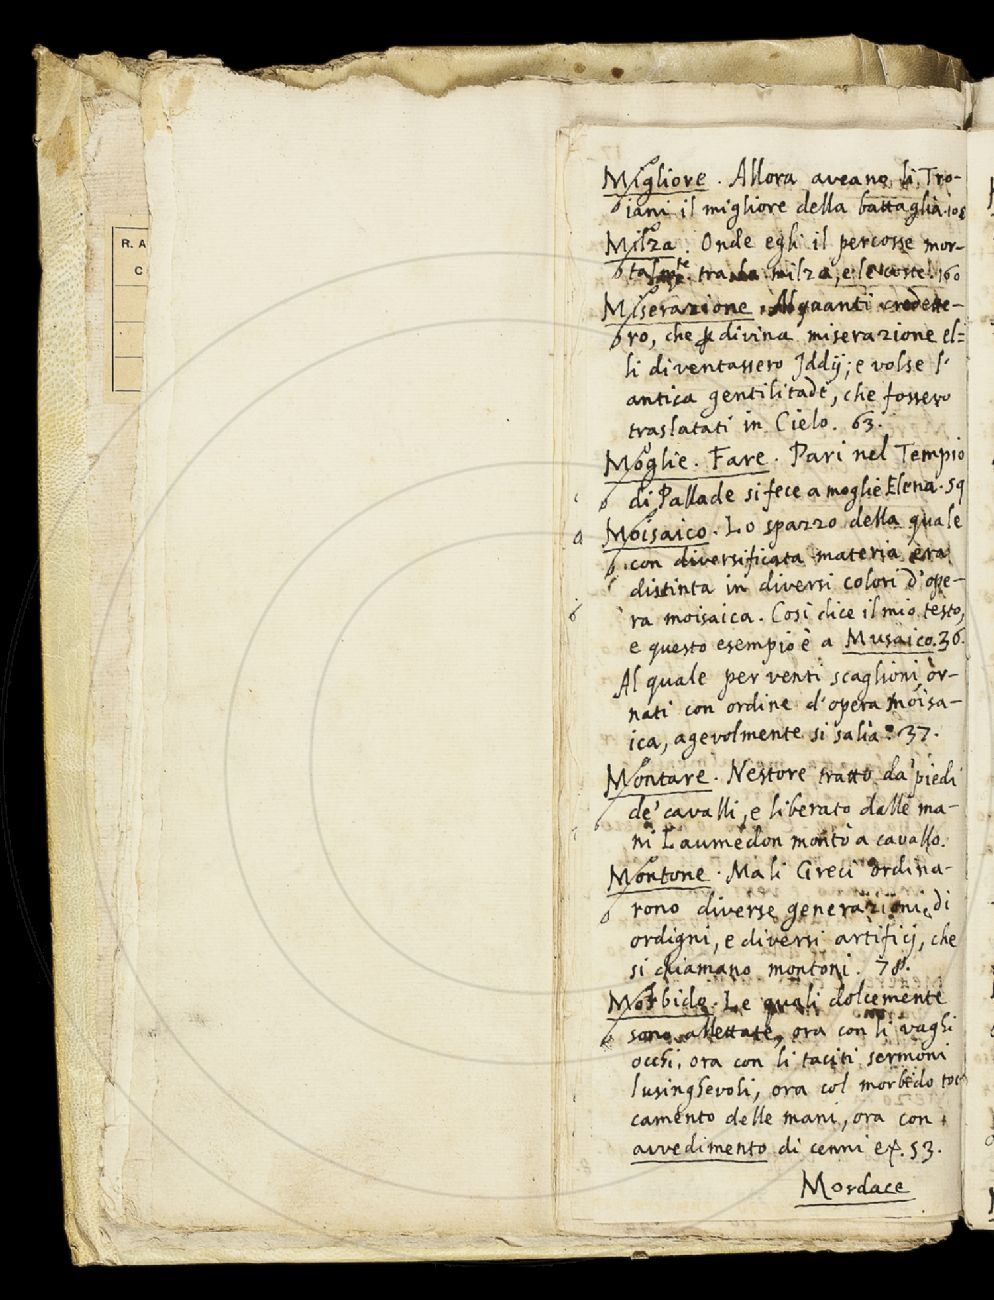 R. A
C
Migliore. Allora aveano li Tro-
iani il migliore della battaglia. 108
Milza. Onde egli il percosse mor-
talmte. tra la milza, e le coste. 160
Miserazione. Alquanti credette-
ro, che p divina miserazione el=
li diventassero Iddij; e volse l'
antica gentilitade, che fossero
traslatati in Cielo. 63.
Moglie. Fare. Pari nel Tempio
di Pallade si fece a moglie Elena. 59
Moisaico. Lo spazzo della quale
con diversificata materia era
distinta in diversi colori d'ope-
ra moisaica. Così dice il mio testo,
e questo esempio è a Musaico. 36.
Al quale per venti scaglioni or-
nati con ordine d'opera moisa-
ica, agevolmente si salia. 37.
Montare. Nestore tratto da' piedi
de' cavalli, e liberato dalle ma-
ni Laumedon montò a cavallo.
Montone. Ma li Greci ordina-
rono diverse generazioni di
ordigni, e diversi artificj, che
si chiamano montoni. 78.
Morbido. Le quali dolcemente
sono allettate, ora con li vaghi
occhi, ora con li taciti sermoni
lusinghevoli, ora col morbido toc
camento delle mani, ora con
avvedimento di cenni 53.
Mordace